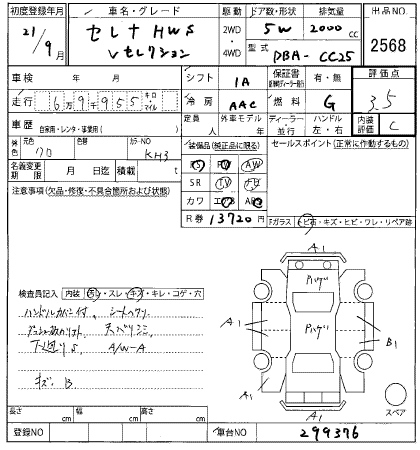 初度登録年月 車名・グレード 駆動 ドア数・形状 排気量 出品NO
21/9月 セレナ HWS Vセレクション 2WD・4WD 5W 2000cc 2568
型式 DBA-CC25
車検 年 月 シフト IA 保証書 有・無 評価点
走行 6万9千955 キロ・マイル 冷房 AAC 燃料 G 3.5
車歴 自家用・レンタ・事業用( ) 定員 人 外車モデル 年 ディーラー・並行 ハンドル 左・右 内装評価 C
元色 色替 カラーNO 装備品(純正品に限る) セールスポイント(正常に作動するもの)
KH3 PS PW AW
名義変更期限 月 日迄 積載 t SR TV ナビ
注意事項(欠品・修復・不具合箇所および状態) カワ エアB ABS
R券 13720円 Fガラス トビ石・キズ・ヒビ・ワレ・リペア跡
A1
検査員記入 内装 スレ・キズ・キレ・コゲ・穴
ハンドルカバー付 シート
A/W-A
キズ B
A1 A1 B1
A1 A1
A1
スペア
長さ cm 幅 cm 高さ cm
登録NO 車台NO 299376